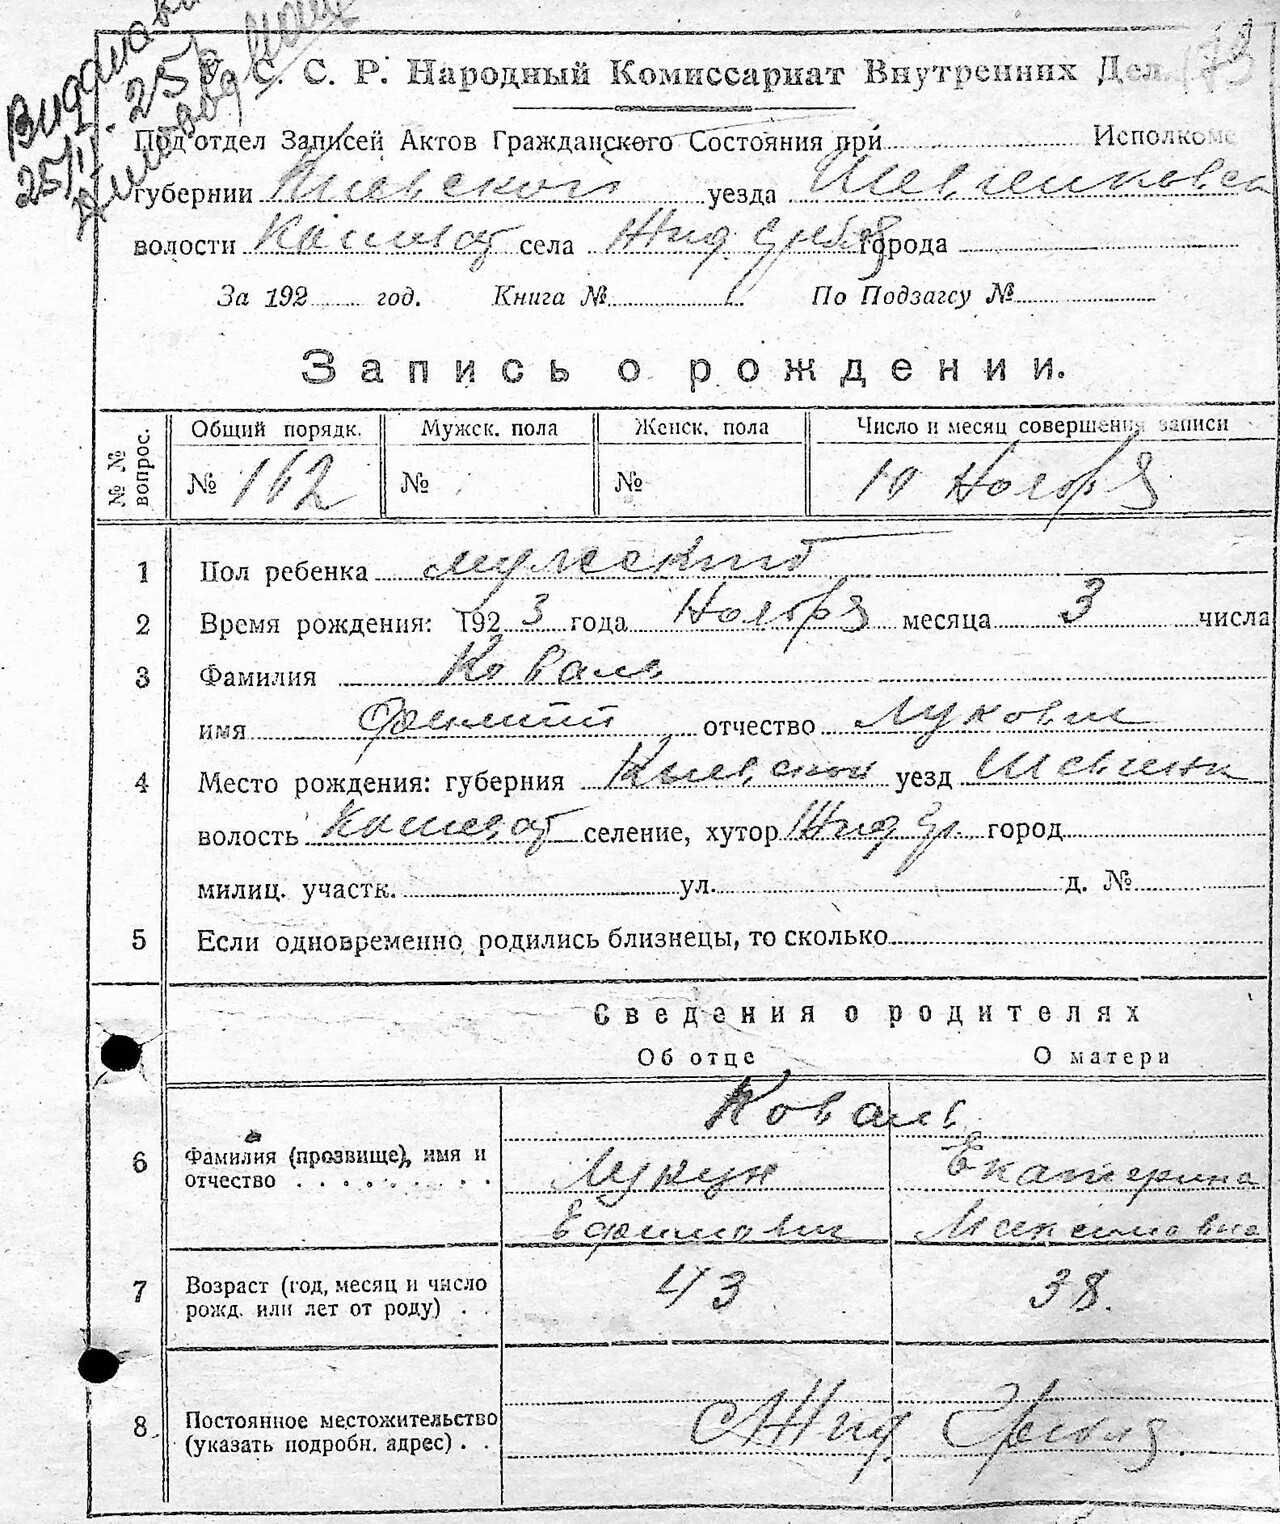 Видана
25/II. 25 р
У. С. С. Р. Народный Комиссариат Внутренних Дел. 173
Под'отдел Записей Актов Гражданского Состояния при Исполкоме
губернии Киевской уезда Шевченковск
волости Кошеват села Жид. Гребля города
За 192 год. Книга № По Подзагсу №
Запись о рождении.
№ № вопрос. Общий порядк. Мужск. пола Женск. пола Число и месяц совершения записи
№ 162 № № 10 Ноября
1 Пол ребенка мужский
2 Время рождения: 1923 года Ноября месяца 3 числа
3 Фамилия Коваль
имя отчество Лукович
4 Место рождения: губерния Киевской уезд Шевченк
волость Кошеват селение, хутор Жид Гр. город
милиц. участк. ул. д. №
5 Если одновременно родились близнецы, то сколько
Сведения о родителях
Об отце О матери
Коваль
6 Фамилия (прозвище), имя и Лукун Екатерина
отчество . . . . . . . . . Ефимович Максимовна
7 Возраст (год, месяц и число 43 38.
рожд. или лет от роду) . .
8. Постоянное местожительство С Жид. Гребля.
(указать подробн. адрес) . .